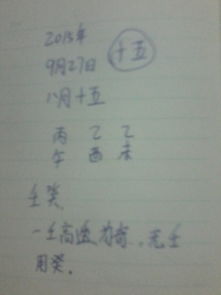 2015年
9月27日 十五
八月十五
丙 乙 乙
午 酉 未
壬癸
一壬高透为奇，无壬
用癸.